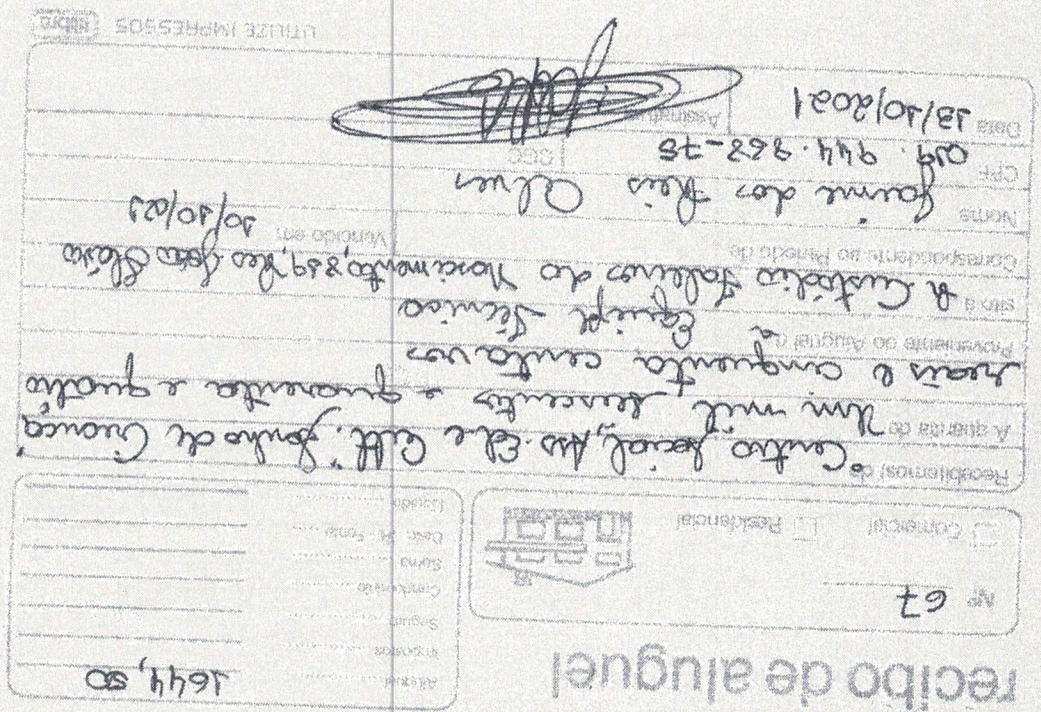 recibo de aluguel
Nº 67
Comercial Residencial
Aluguel 1644,50
Impostos
Seguro
Condomínio
Soma
Desc. IR - Fonte
Líquido
Recebi(emos) de Centro Social, Ass. Ed e Cult. "Sonho de Criança"
A quantia de Um mil seiscentos e quarenta e quatro
reais e cinquenta centavos
Proveniente do Aluguel da Equipe Técnica
sito à R Custódio Faleiros do Nascimento, 859, Res João
Correspondente ao Período de Vencido em 10/10/21
Nome Jaime dos Reis Alves
CPF 019.944.968-75 CGC
Data 13/10/2021 Assinatura
UTILIZE IMPRESSOS